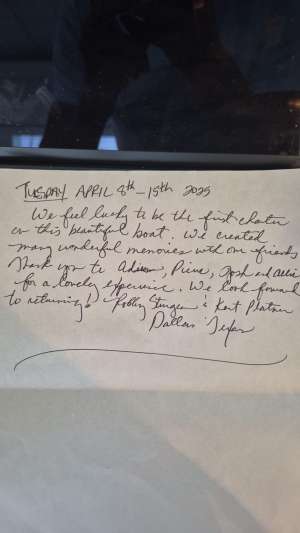 TUESDAY APRIL 8th – 15th 2025
We feel lucky to be the first charter
on this beautiful boat. We created
many wonderful memories with our friends
Thank you to Pierre, Josh and
for a lovely experience. We look forward
to returning! & Kent
Dallas Texas